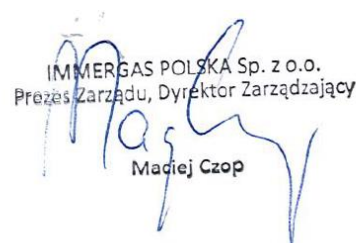 IMMERGAS POLSKA Sp. z o.o.
Prezes Zarządu, Dyrektor Zarządzający
Maciej Czop